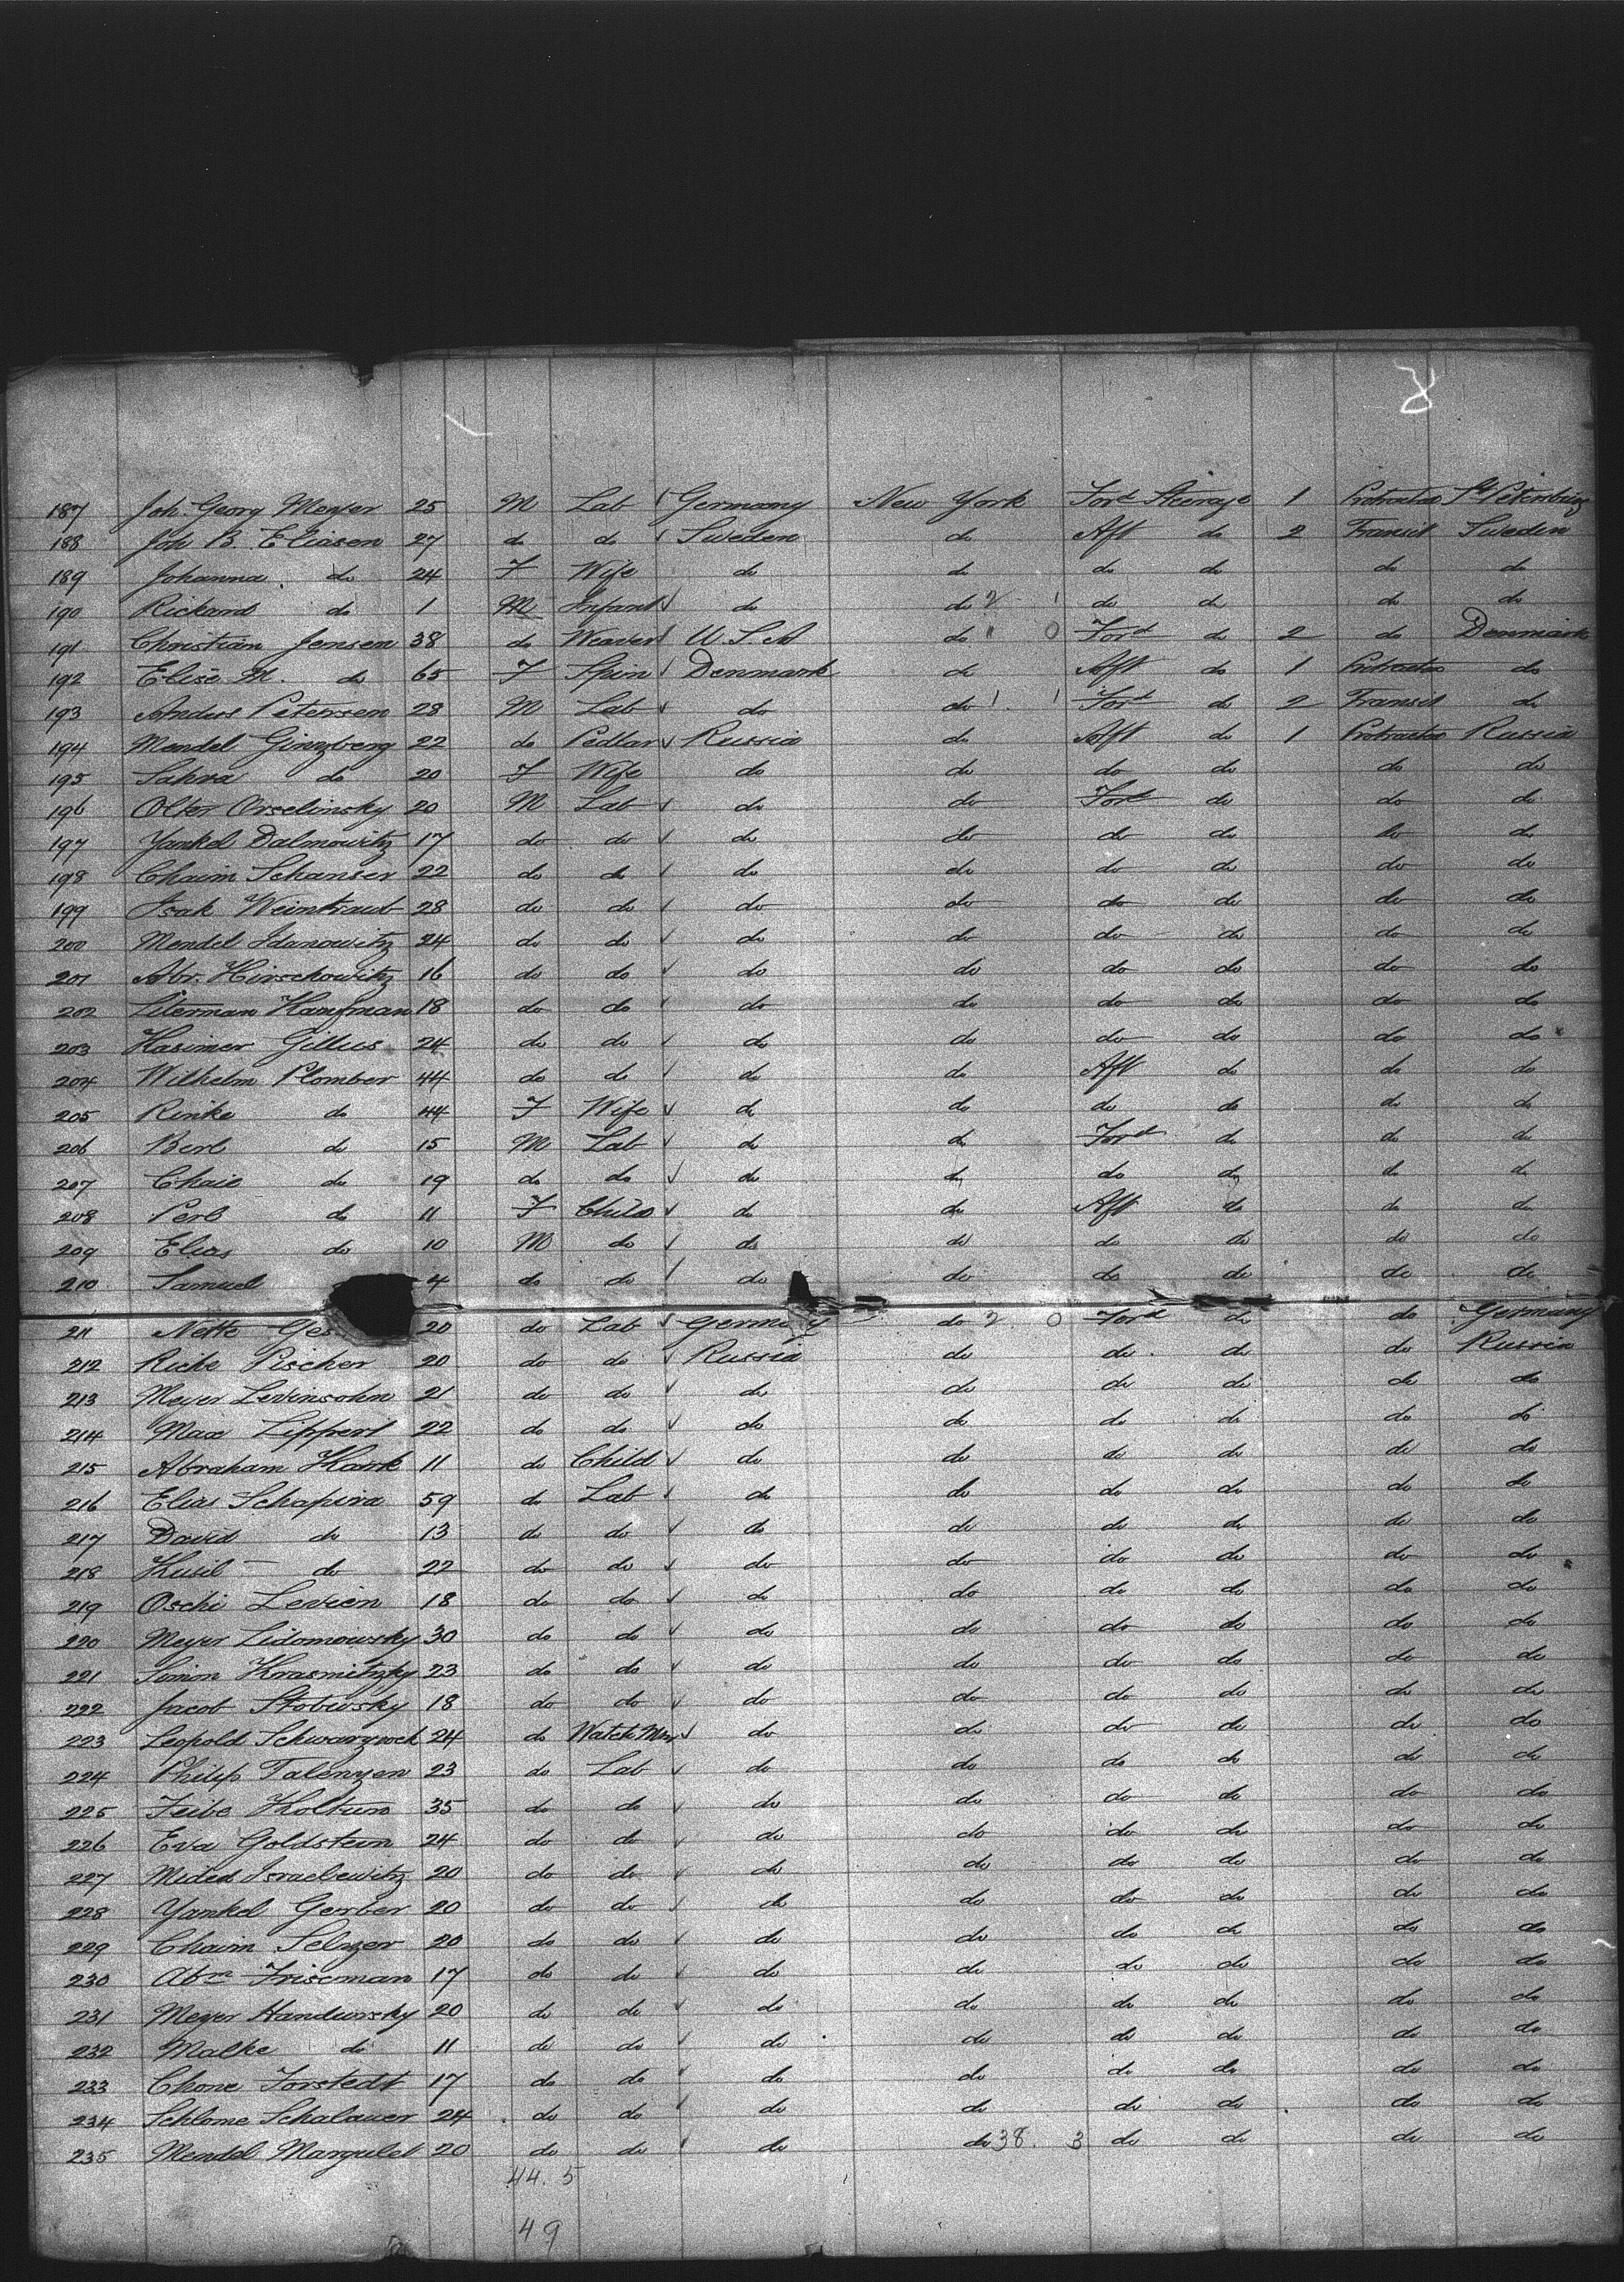 8
187 Joh. Georg Meyer 25 M Lab Germany New York Ford Steerage 1 Protracted St Petersburg
188 Joh B. Eliasen 27 do do Sweden do Aft do 2 Transit Sweden
189 Johanna do 24 F Wife do do do do do do
190 Rickard do 1 M Infant do do 2 1 do do do do
191 Christian Jensen 38 do Weaver U.S.A do " 0 Ford do 2 do Denmark
192 Elise M. do 65 F Spin Denmark do Aft do 1 Protracted do
193 Anders Petersen 28 M Lab do do 1. 1 Ford do 2 Transit do
194 Mendel Ginzberg 22 do Pedlar Russia do Aft do 1 Protracted Russia
195 Sahra do 20 F Wife do do do do do do
196 Olter Orselinsky 20 M Lab do do Ford do do do
197 Yankel Dalmowitz 17 do do do do do do do do
198 Chaim Schanser 22 do do do do do do do do
199 Isak Weintraub 28 do do do do do do do do
200 Mendel Idanowitz 24 do do do do do do do do
201 Abr. Hirschowitz 16 do do do do do do do do
202 Literman Kaufman 18 do do do do do do do do
203 Kasimer Gillus 24 do do do do do do do do
204 Wilhelm Plomber 44 do do do do Aft do do do
205 Rinke do 44 F Wife do do do do do do
206 Berl do 15 M Lab do do Ford do do do
207 Chaie do 19 do do do do do do do do
208 Perl do 11 F Child do do Aft do do do
209 Elias do 10 M do do do do do do do
210 Samuel 4 do do do do do do do do
211 Nette Ges 20 do Lab Germany do 2. 0 Ford do do Germany
212 Ricke Pischer 20 do do Russia do do do do Russia
213 Meyer Levensohn 21 do do do do do do do do
214 Max Lippert 22 do do do do do do do do
215 Abraham Hark 11 do Child do do do do do do
216 Elias Schapira 59 do Lab do do do do do do
217 David do 13 do do do do do do do do
218 Kusil do 22 do do do do do do do do
219 Oschi Levien 18 do do do do do do do do
220 Meyer Lidomowsky 30 do do do do do do do do
221 Simon Krasmitzky 23 do do do do do do do do
222 Jacob Stobwsky 18 do do do do do do do do
223 Leopold Schwarzrock 24 do Watch Mkr do do do do do do
224 Philip Talenzen 23 do Lab do do do do do do
225 Feibe Koltun 35 do do do do do do do do
226 Eva Goldstein 24 do do do do do do do do
227 Israelewitz 20 do do do do do do do do
228 Yankel Gerber 20 do do do do do do do do
229 Chaim Selzer 20 do do do do do do do do
230 Abm Friseman 17 do do do do do do do do
231 Meyer Handwsky 20 do do do do do do do do
232 Malke do 11 do do do do do do do do
233 Chone Forstedt 17 do do do do do do do do
234 Schlome Schalauer 24 do do do do do do do do
235 Mendel Margulet 20 do do do do 38. 3 do do do do
44. 5
49